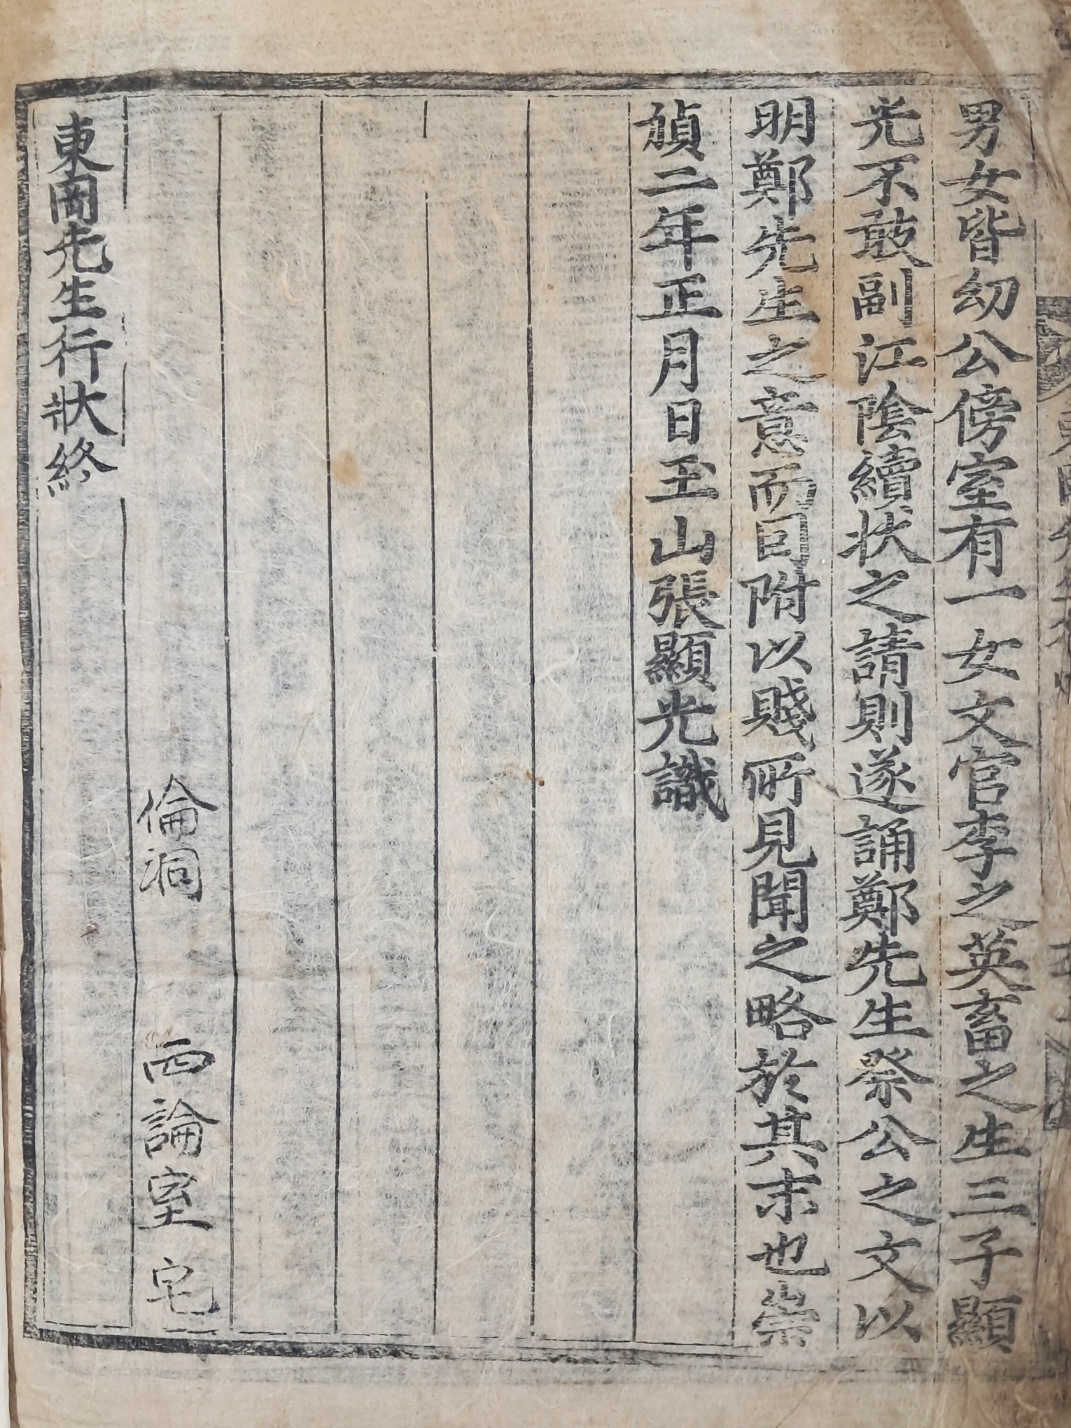 男女皆幼公傍室有一女文官李之英畜之生三子顯
光不敢副江陰續狀之請則遂誦鄭先生祭公之文以
明鄭先生之意而因附以賤所見聞之略於其末也崇
禎二年正月日玉山張顯光識
倫洞 西論室宅
東岡先生行狀終